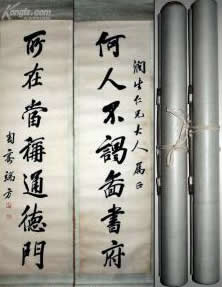 何人不謁圖書府
潤生仁兄大人屬正
所在當稱通德門
匋齋端方